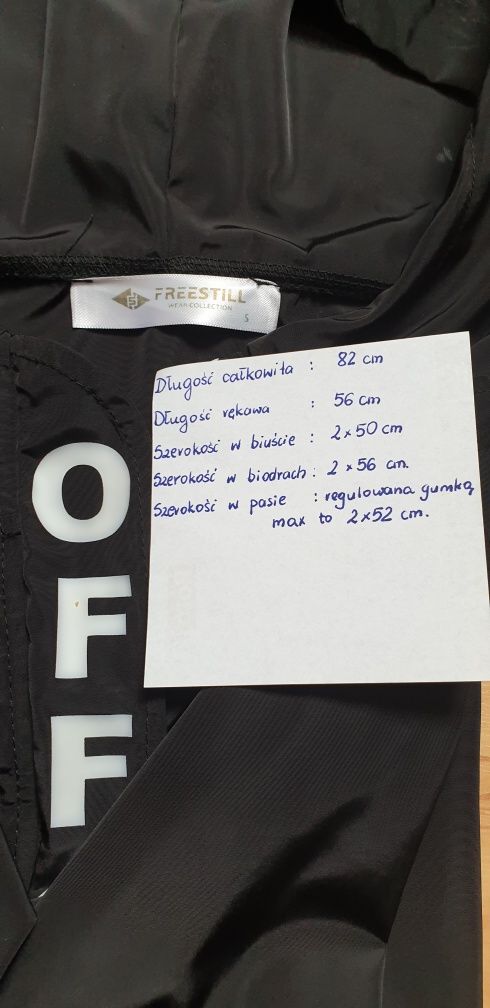 FREESTILL
WEAR COLLECTION
S
Długość całkowita : 82 cm
Długość rękawa : 56 cm
Szerokość w biuście : 2x50 cm
Szerokość w biodrach : 2x56 cm.
Szerokość w pasie : regulowana gumką
max to 2x52 cm.
O
F
F